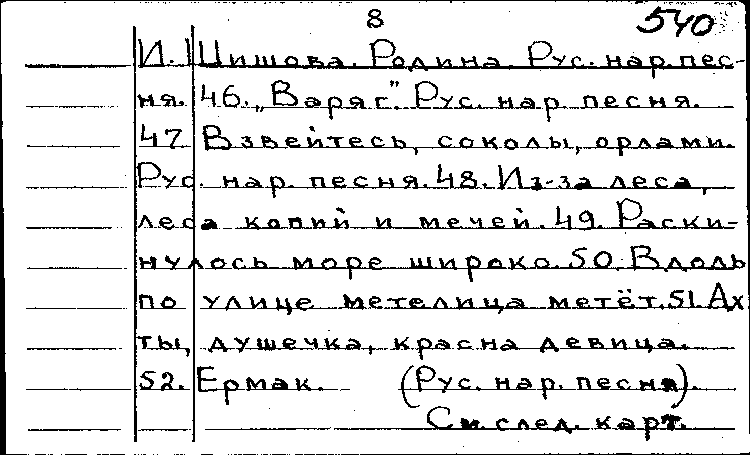 8 540
И. Шишова. Родина. Рус. нар. пес-
ня. 46. „Варяг". Рус. нар. песня.
47 Взвейтесь, соколы, орлами.
Рус. нар. песня. 48. Из-за леса,
леса копий и мечей. 49. Раски-
нулось море широко. 50. Вдоль
по улице метелица метёт. 51. Ах
ты, душечка, красна девица.
52. Ермак. (Рус. нар. песня).
См. след. карт.